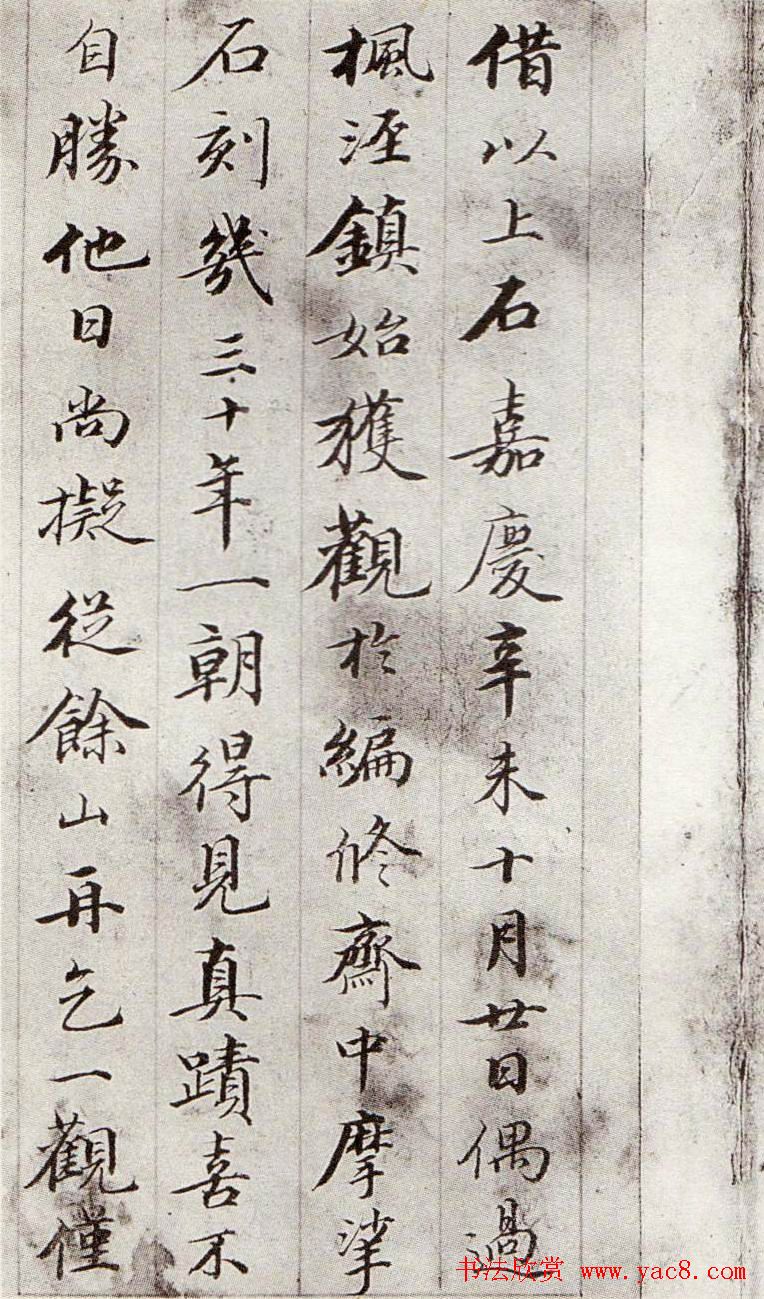 借以上石嘉慶辛未十月廿日偶過
楓涇鎮始獲觀於編修齋中摩挲
石刻幾三十年一朝得見真蹟喜不
自勝他日尚擬從餘山再乞一觀僅
书法欣赏 www.yac8.com